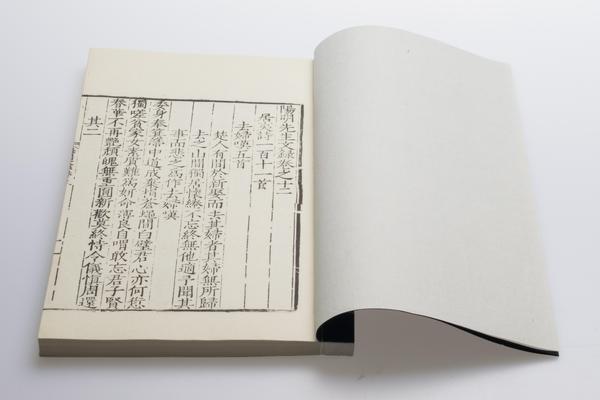 陽明先生文錄卷之十二
居夷詩一百十一首
去婦嘆五首
楚人有間於新娶而去其婦者其婦無所歸
去之山間獨居懷綣不忘終無他適予聞其
事而悲之為作去婦嘆
委身奉箕帚中道成棄捐蒼蠅間白璧君心亦何愆
獨嗟貧家女素質難為妍命薄良自喟敢忘君子賢
春華不再艷頹魄無重圓新歡莫終恃令儀慎周還
其二